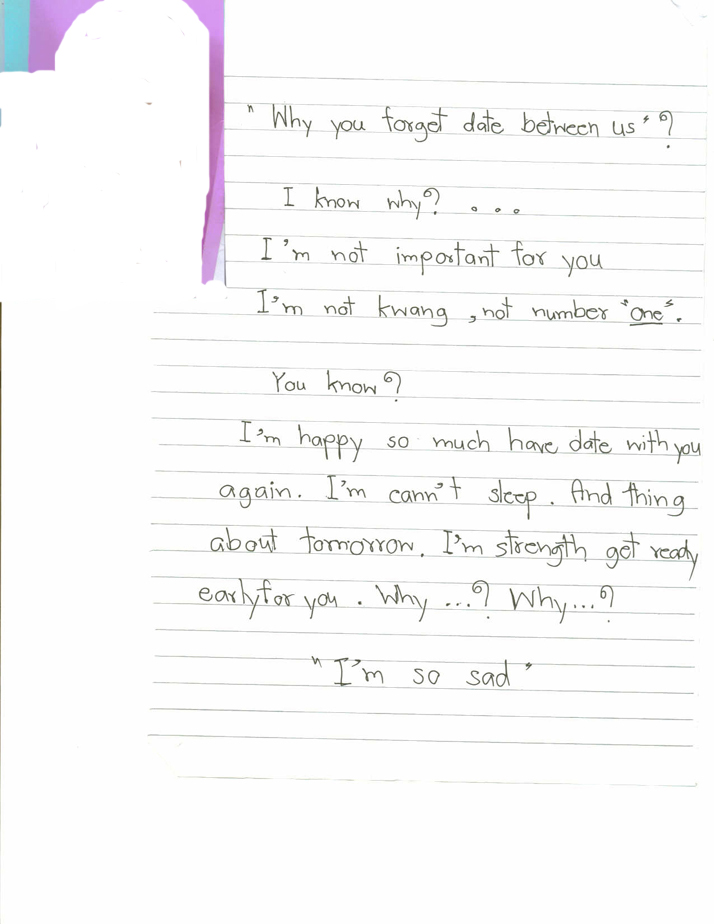 "Why you forget date between us"?
I know why? ...
I'm not important for you
I'm not kwang, not number "one".
You know?
I'm happy so much have date with you
again. I'm cann't sleep. And thing
about tomorrow. I'm strength get ready
early for you. Why ...? Why...?
"I'm so sad"